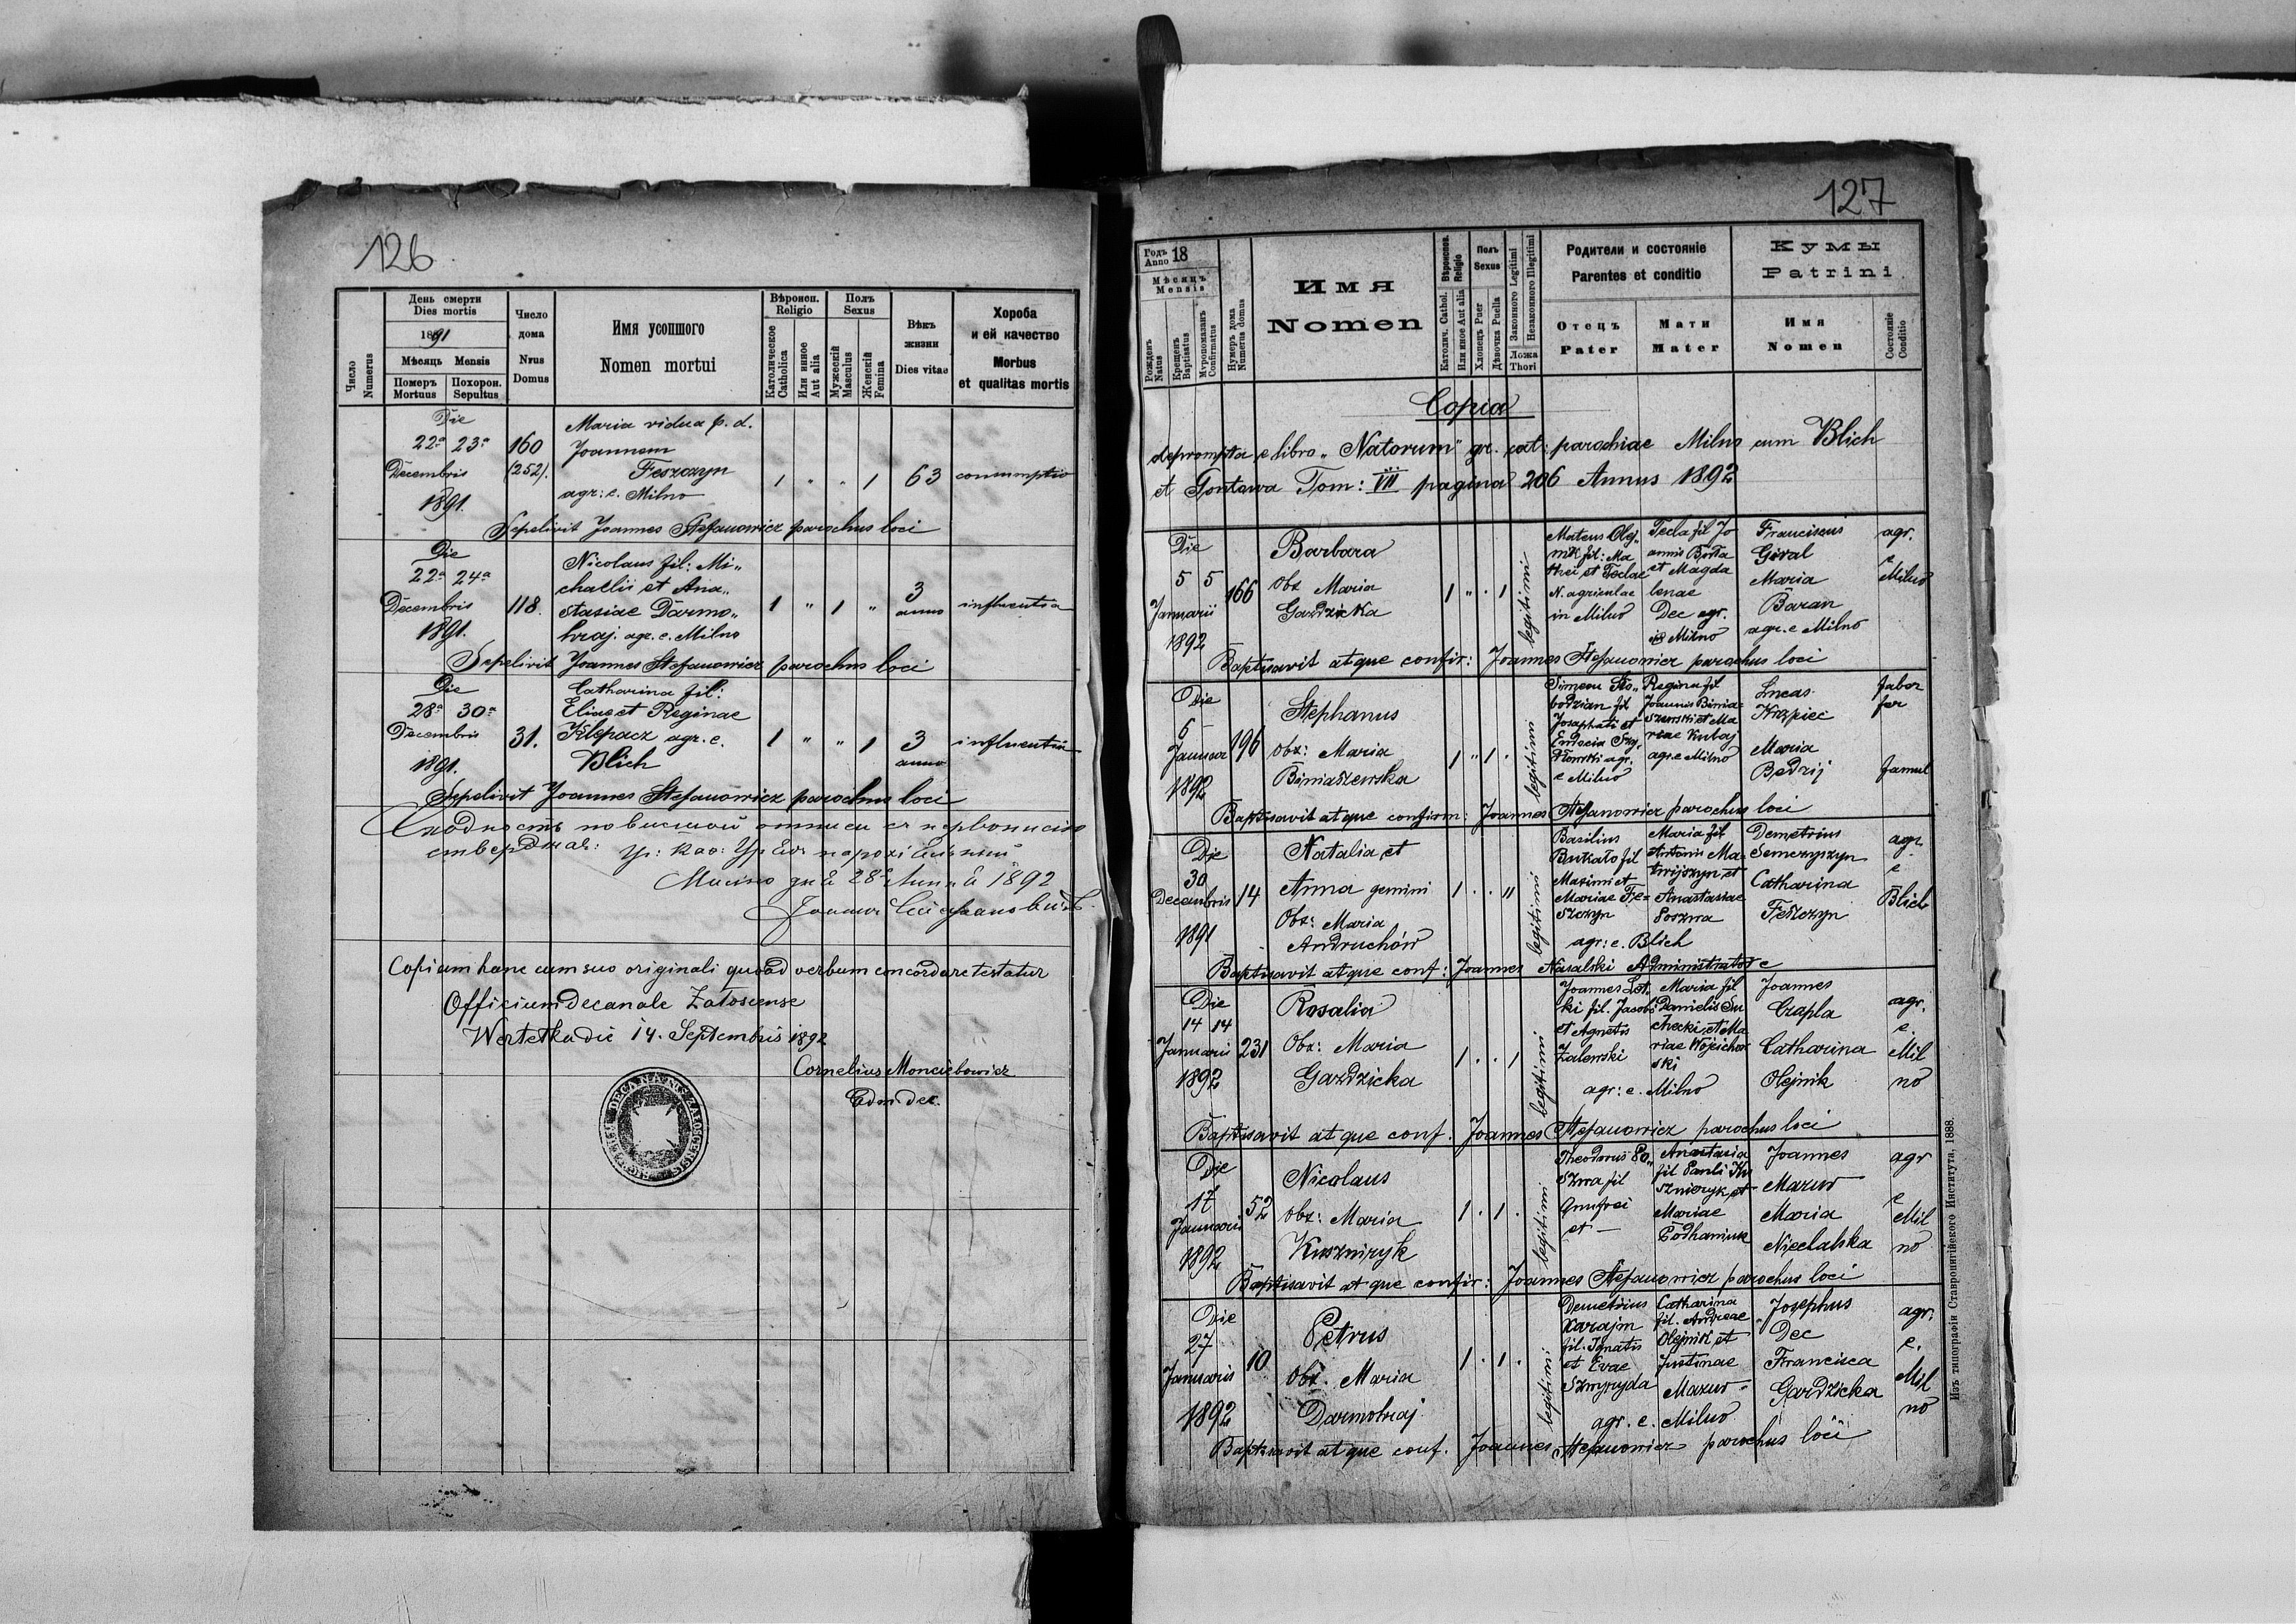 126
День смерти
Dies mortis
1891
Мѣсяць Mensis
Померъ Похорон.
Mortuus Sepultus
Число
Numerus
Число
дома
Nrus
Domus
Имя усопшого
Nomen mortui
Вѣроисп.
Religio
Католическое
Catholica
Или инное
Aut alia
Полъ
Sexus
Мужескій
Masculus
Женскій
Femina
Вѣкъ
жизни
Dies vitae
Хороба
и ей качество
Morbus
et qualitas mortis
Die
22ª 23ª
Decembris
1891.
160
(252).
Maria vidua p. d.
Joannem
Feszczyn
agr: e. Milno
1 " " 1 63 consumptio
Sepelivit Joannes Stefanowicz parochus loci
Die
22ª 24ª
Decembris
1891.
118.
Nicolaus fil: Mi„
chaelis et Ana„
stasiae Darmo„
hraj. agr. e. Milno
1 " 1 " 3
anno
influentia
Sepelivit Joannes Stefanowicz parochus loci
Die
28ª 30ª
Decembris
1891.
31.
Catharina fil:
Eliae et Reginae
Klepacz agr. e.
Blich
1 " " 1 3
anno
influentia
Sepelivit Joannes Stefanowicz parochus loci
1892
Copiam hanc cum suo originali quoad verbum concordare testatur
Officium decanale Załoscense
Wertetka die 14. Septembris 1892
Cornelius
Adm dec.
127
Годъ
Anno 18
Мѣсяцъ
Mensis
Рожденъ
Natus
Крещенъ
Baptisatus
Муропомазанъ
Confirmatus
Нумеръ дома
Numerus domus
Имя
Nomen
Вѣроиспов.
Religio
Католич. Cathol.
Или иное Aut alia
Полъ
Sexus
Хлопець Puer
Дѣвочка Puella
Законного Legitimi
Незаконного Illegitimi
Ложа
Thori
Родители и состояніе
Parentes et conditio
Отецъ
Pater
Мати
Mater
Кумы
Patrini
Имя
Nomen
Состояніе
Conditio
Copia
deprompta e libro „Natorum" gr. cat: parochiae Milno cum Blich
et Gontawa Tom: VIII pagina 206 Annus 1892
Die
5 5
Januarii
1892
166
Barbara
obs Maria
Gazdzicka
1 " . 1
legitimi
Mateus Olej„
nik fil: Ma
thei et Teclae
N. agricolae
in Milno
Tecla fil Jo
annis Boita
et Magda
lenae
Dec agr.
Milno
Franciscus
Giral
Maria
Baran
agr. e Milno
agr.
e
Milno
Baptisavit atque confir: Joannes Stefanowicz parochus loci
Die
5
Januar
1892
196
Stephanus
obs: Maria
Biniaszewska
1 " 1 .
legitimi
Simeon
bodzian fil
Josaphati et
agr.
e Milno
Regina fil
Joannis Binia„
szewski et Ma
riae Kubaj
agr. e Milno
Lucas
Krapiec
Maria
Bedrij
faber
fer
famul
Baptisavit atque confirm: Joannes Stefanowicz parochus loci
Die
30
Decembris
1891
14
Natalia et
Anna gemini
Obs: Maria
Andruchów
1 . . "
legitimi
Basilius
Bukało fil
Maximi et
Mariae Fe=
szczyn
Maria fil
Antonii Ma=
twijszyn et
Anastasiae
Soszna
agr: e. Blich
Demetrius
Semczyszyn
Catharina
Feszczyn
agr.
e
Blich
Baptisavit atque conf: Joannes Nasalski Administrator
Die
14 14
Januarii
1892
231
Rosalia
Obs: Maria
Gazdzicka
1 . . 1
legitimi
Joannes Lot„
ki fil. Jacobi
et Agnetis
Zalewski
Maria fil
Danielis Su
checki, et Ma
riae Wojciechow
ski
agr: e. Milno
Joannes
Czapla
Catharina
Olejnik
agr.
e.
Mil
no
Baptisavit atque conf. Joannes Stefanowicz parochus loci
Die
17
Januarii
1892
52
Nicolaus
obs: Maria
Kuszniryk
1 . 1 .
legitimi
Theodorus So„
szna fil
Onufrei
et —
Anastasia
fil Pauli Ku
szniryk, et
Mariae
Podhaniuk
Joannes
Mazur
Maria
Niechalska
agr
e
Mil
no
Baptisavit atque confir: Joannes Stefanowicz parochus loci
Die
27
Januarii
1892
10
Petrus
obs. Maria
Darmohraj
1 . 1 .
legitimi
Demetrius
Karajm
fil. Ignatis
et Evae
Szmyryda
Catharina
fil. Andreae
Olejnik et
Justinae
Mazur
agr. e. Milno
Josephus
Dec
Francisca
Gardzicka
agr.
e.
Mil
no
Baptisavit atque conf. Joannes Stefanowicz parochus loci
Изъ типографіи Ставропигійского Института, 1888.